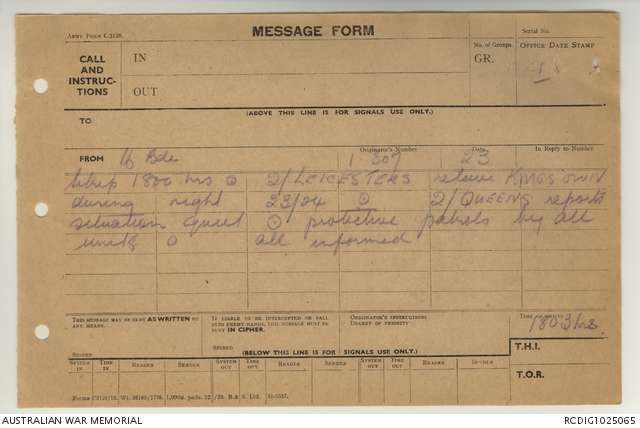 Army Form C.2128.
MESSAGE FORM
Serial No.
CALL AND INSTRUCTIONS
IN
OUT
No. of Groups.
GR.
OFFICE DATE STAMP
(ABOVE THIS LINE IS FOR SIGNALS USE ONLY.)
TO
FROM 16 Bde
Originator's Number
1 307
Date
23
In Reply to Number
Sitrep 1800 hrs ⊙ 2/LEICESTERS relieve KINGS OWN
during night 23/24 ⊙ 2/QUEENS reports
situation quiet ⊙ protective patrols by all
units ⊙ all informed
THIS MESSAGE MAY BE SENT AS WRITTEN BY ANY MEANS.
IF LIABLE TO BE INTERCEPTED OR FALL INTO ENEMY HANDS, THIS MESSAGE MUST BE SENT IN CIPHER.
ORIGINATOR'S INSTRUCTIONS
DEGREE OF PRIORITY
1803 hrs.
SIGNED
SIGNED
(BELOW THIS LINE IS FOR SIGNALS USE ONLY.)
T.H.I.
SYSTEM IN
TIME IN
READER
SENDER
SYSTEM OUT
TIME OUT
READER
SENDER
SYSTEM OUT
TIME OUT
READER
SENDER
T.O.R.
AUSTRALIAN WAR MEMORIAL
RCDIG1025065